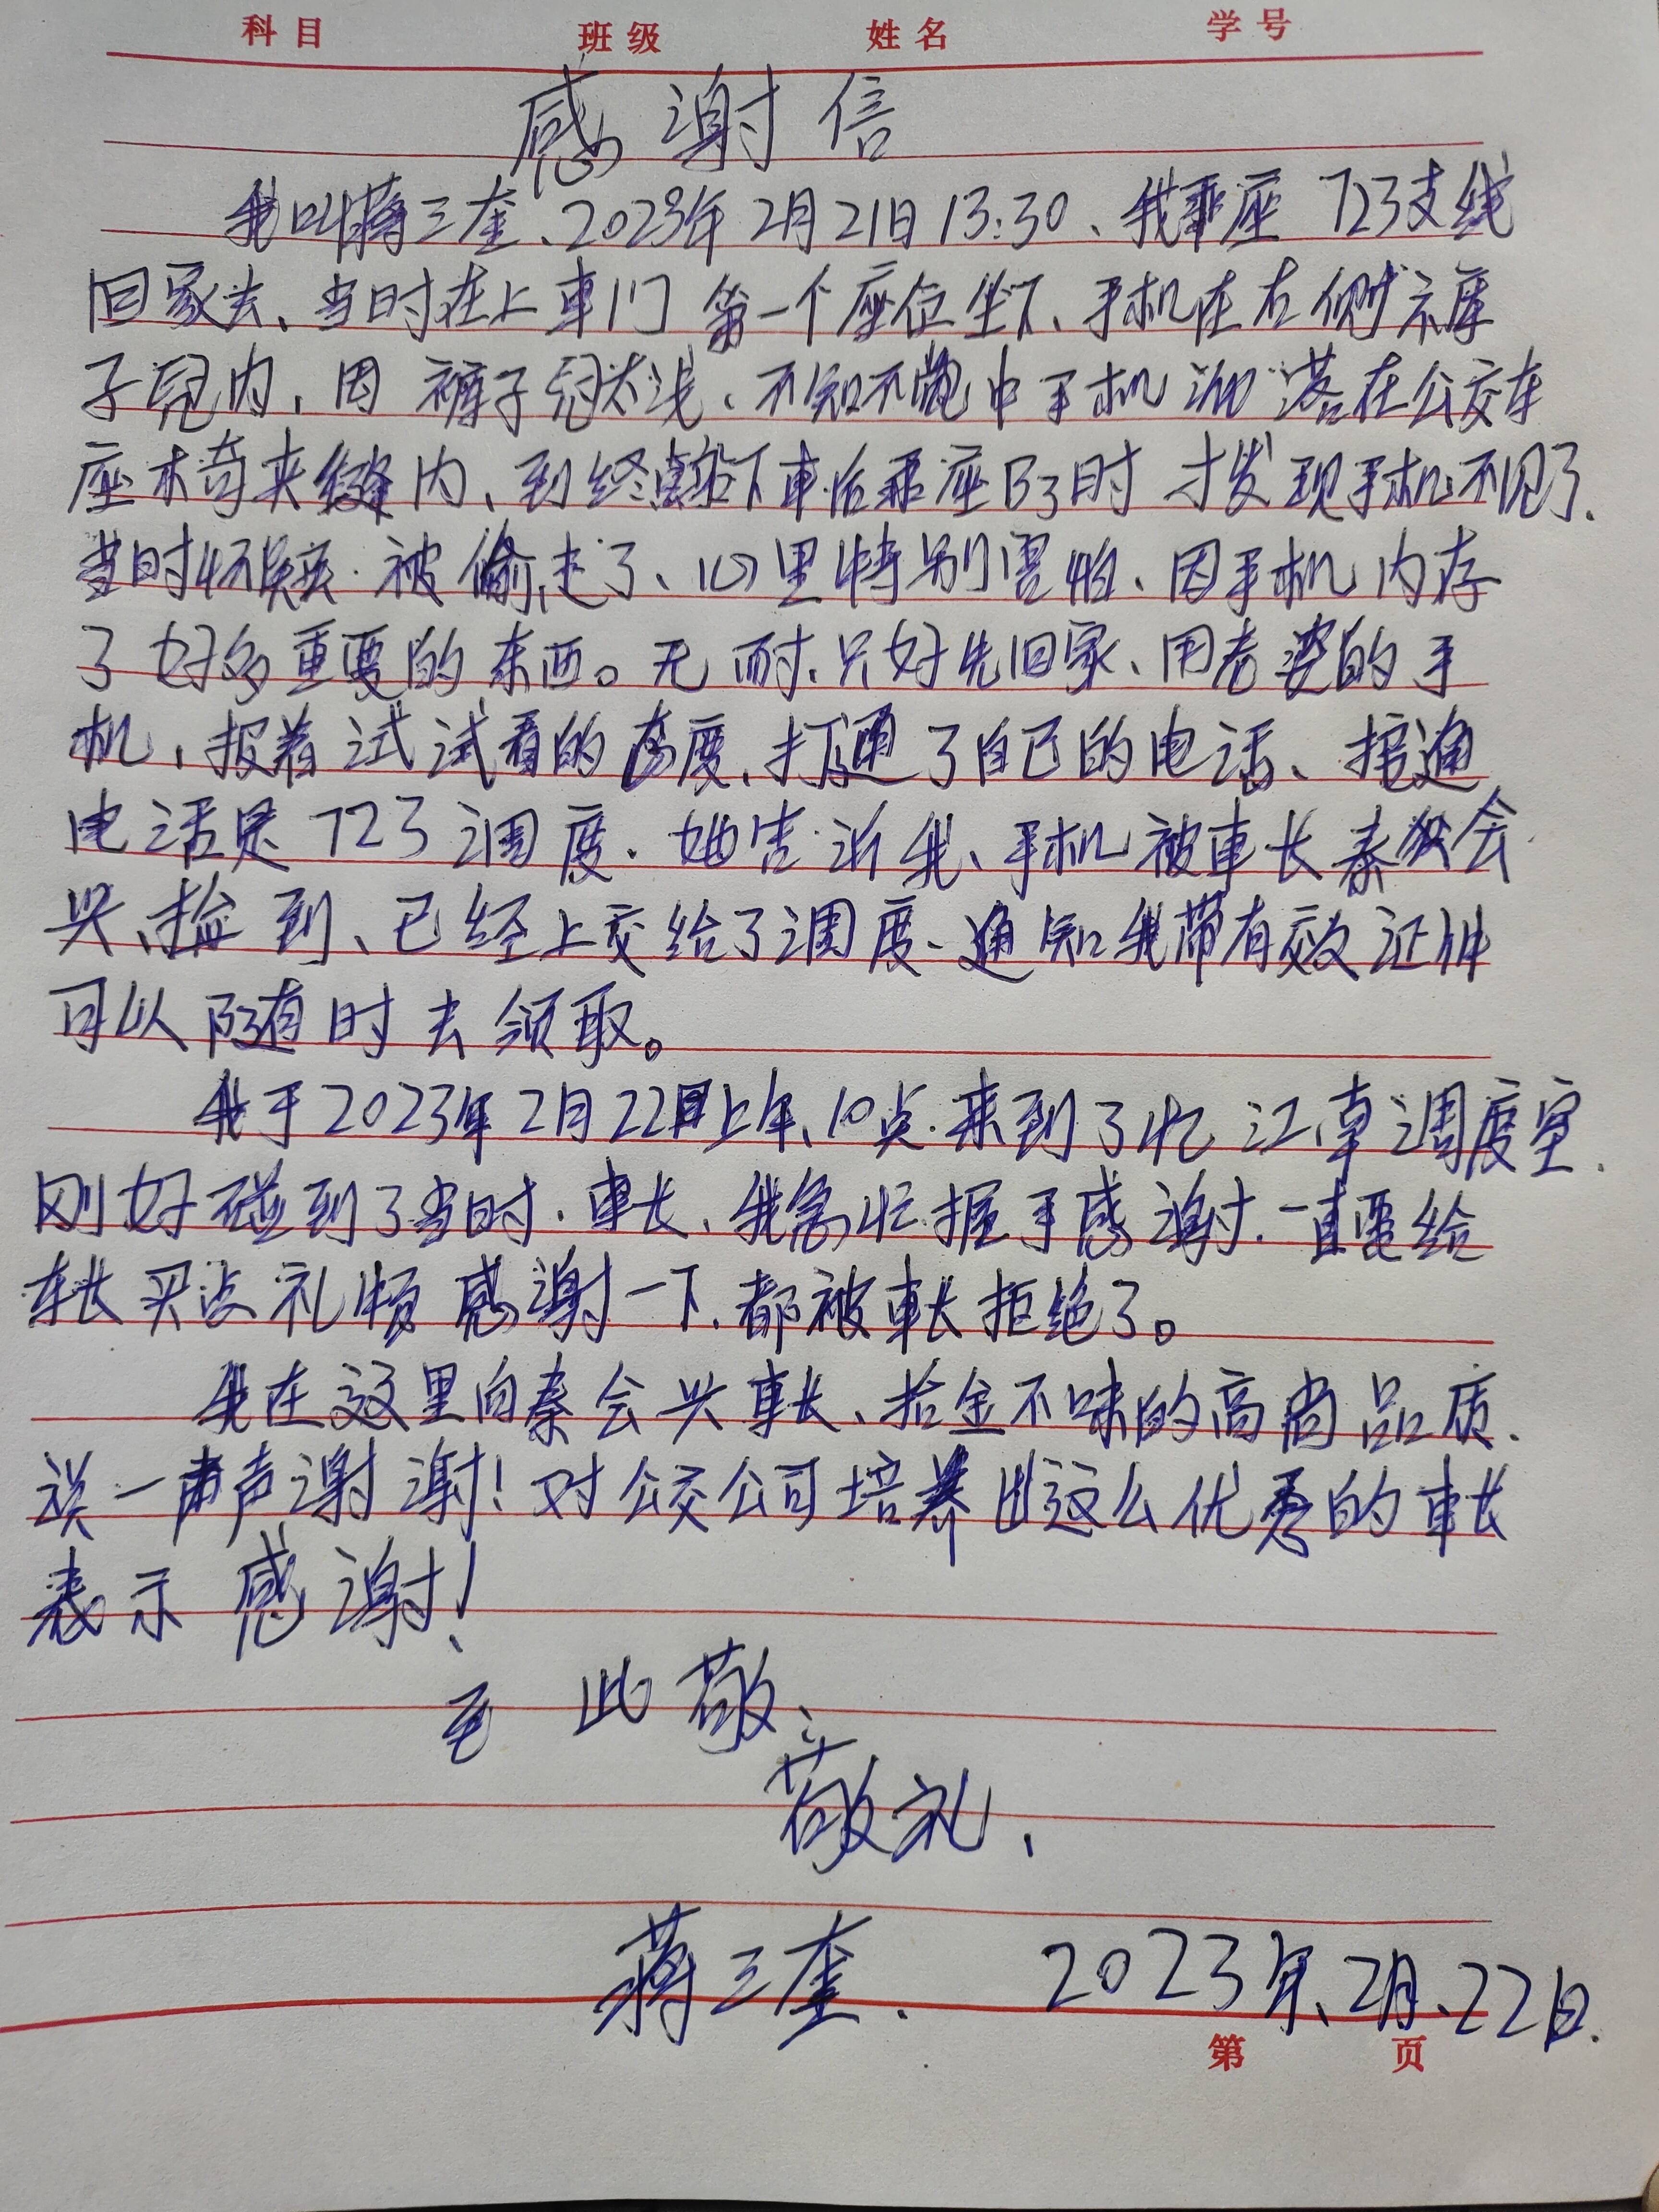 科目 班级 姓名 学号
感谢信
我叫蒋三奎、2023年2月21日13:30、我乘座723支线
回家去、当时在上車门第一个座位坐下、手机在右侧裤
子兜内,因裤子兜太浅、不知不觉中手机滑落在公交车
座椅夹缝内、到终点站下車后乘座B3时才发现手机不见了.
当时怀疑.被偷走了、心里特别害怕、因手机内存
了好多重要的东西。无耐.只好先回家、用老婆的手
机,报着试试看的态度,打通了自己的电话、接通
电话是723调度.她告诉我、手机被車长秦会
兴捡到、已经上交给了调度、通知我带有效证件
可以随时去领取。
我于2023年2月22日上午、10点.来到了忆江南调度室.
刚好碰到了当时.車长、我急忙握手感谢.一直要给
车长买点礼物感谢一下.都被車长拒绝了。
我在这里向秦会兴車长、拾金不昧的高尚品质.
说一声声谢谢!对公交公司培养出这么优秀的車长
表示感谢!
至此敬、
敬礼、
蒋三奎. 2023年、2月、22日.
第 页